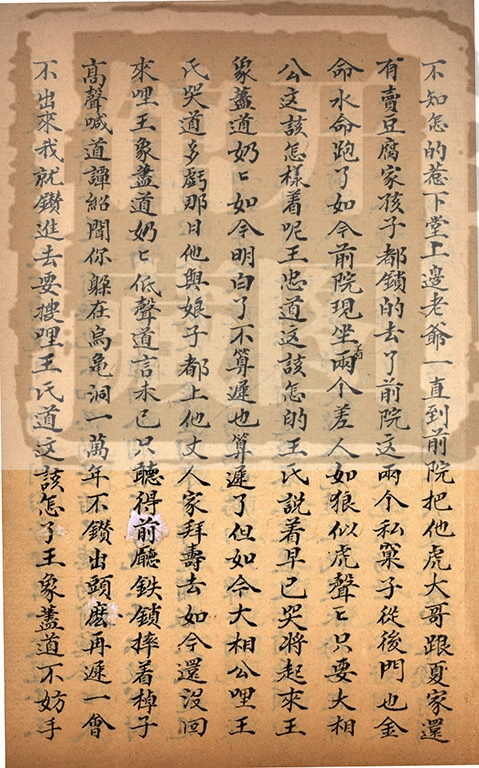 不知怎的惹下堂上邊老爺一直到前院把他虎大哥跟夏家還
有賣豆腐家孩子都鎖的去了前院這兩个私窠子從後門也金
命水命跑了如今前院現坐着兩个差人如狼似虎聲〻只要大相
公這該怎樣着呢王忠道這該怎的王氏說着早已哭將起來王
象藎道奶〻如今明白了不算遲也算遲了但如今大相公哩王
氏哭道多虧那日他與娘子都上他丈人家拜壽去如今還沒回
來哩王象藎道奶〻低聲道言未已只聽得前廳鉄鎖摔着棹子
高聲喊道譚紹聞你躲在烏龜洞一萬年不鑽出頭麽再遲一會
不出來我就鑽進去要搜哩王氏道這該怎了王象藎道不妨手